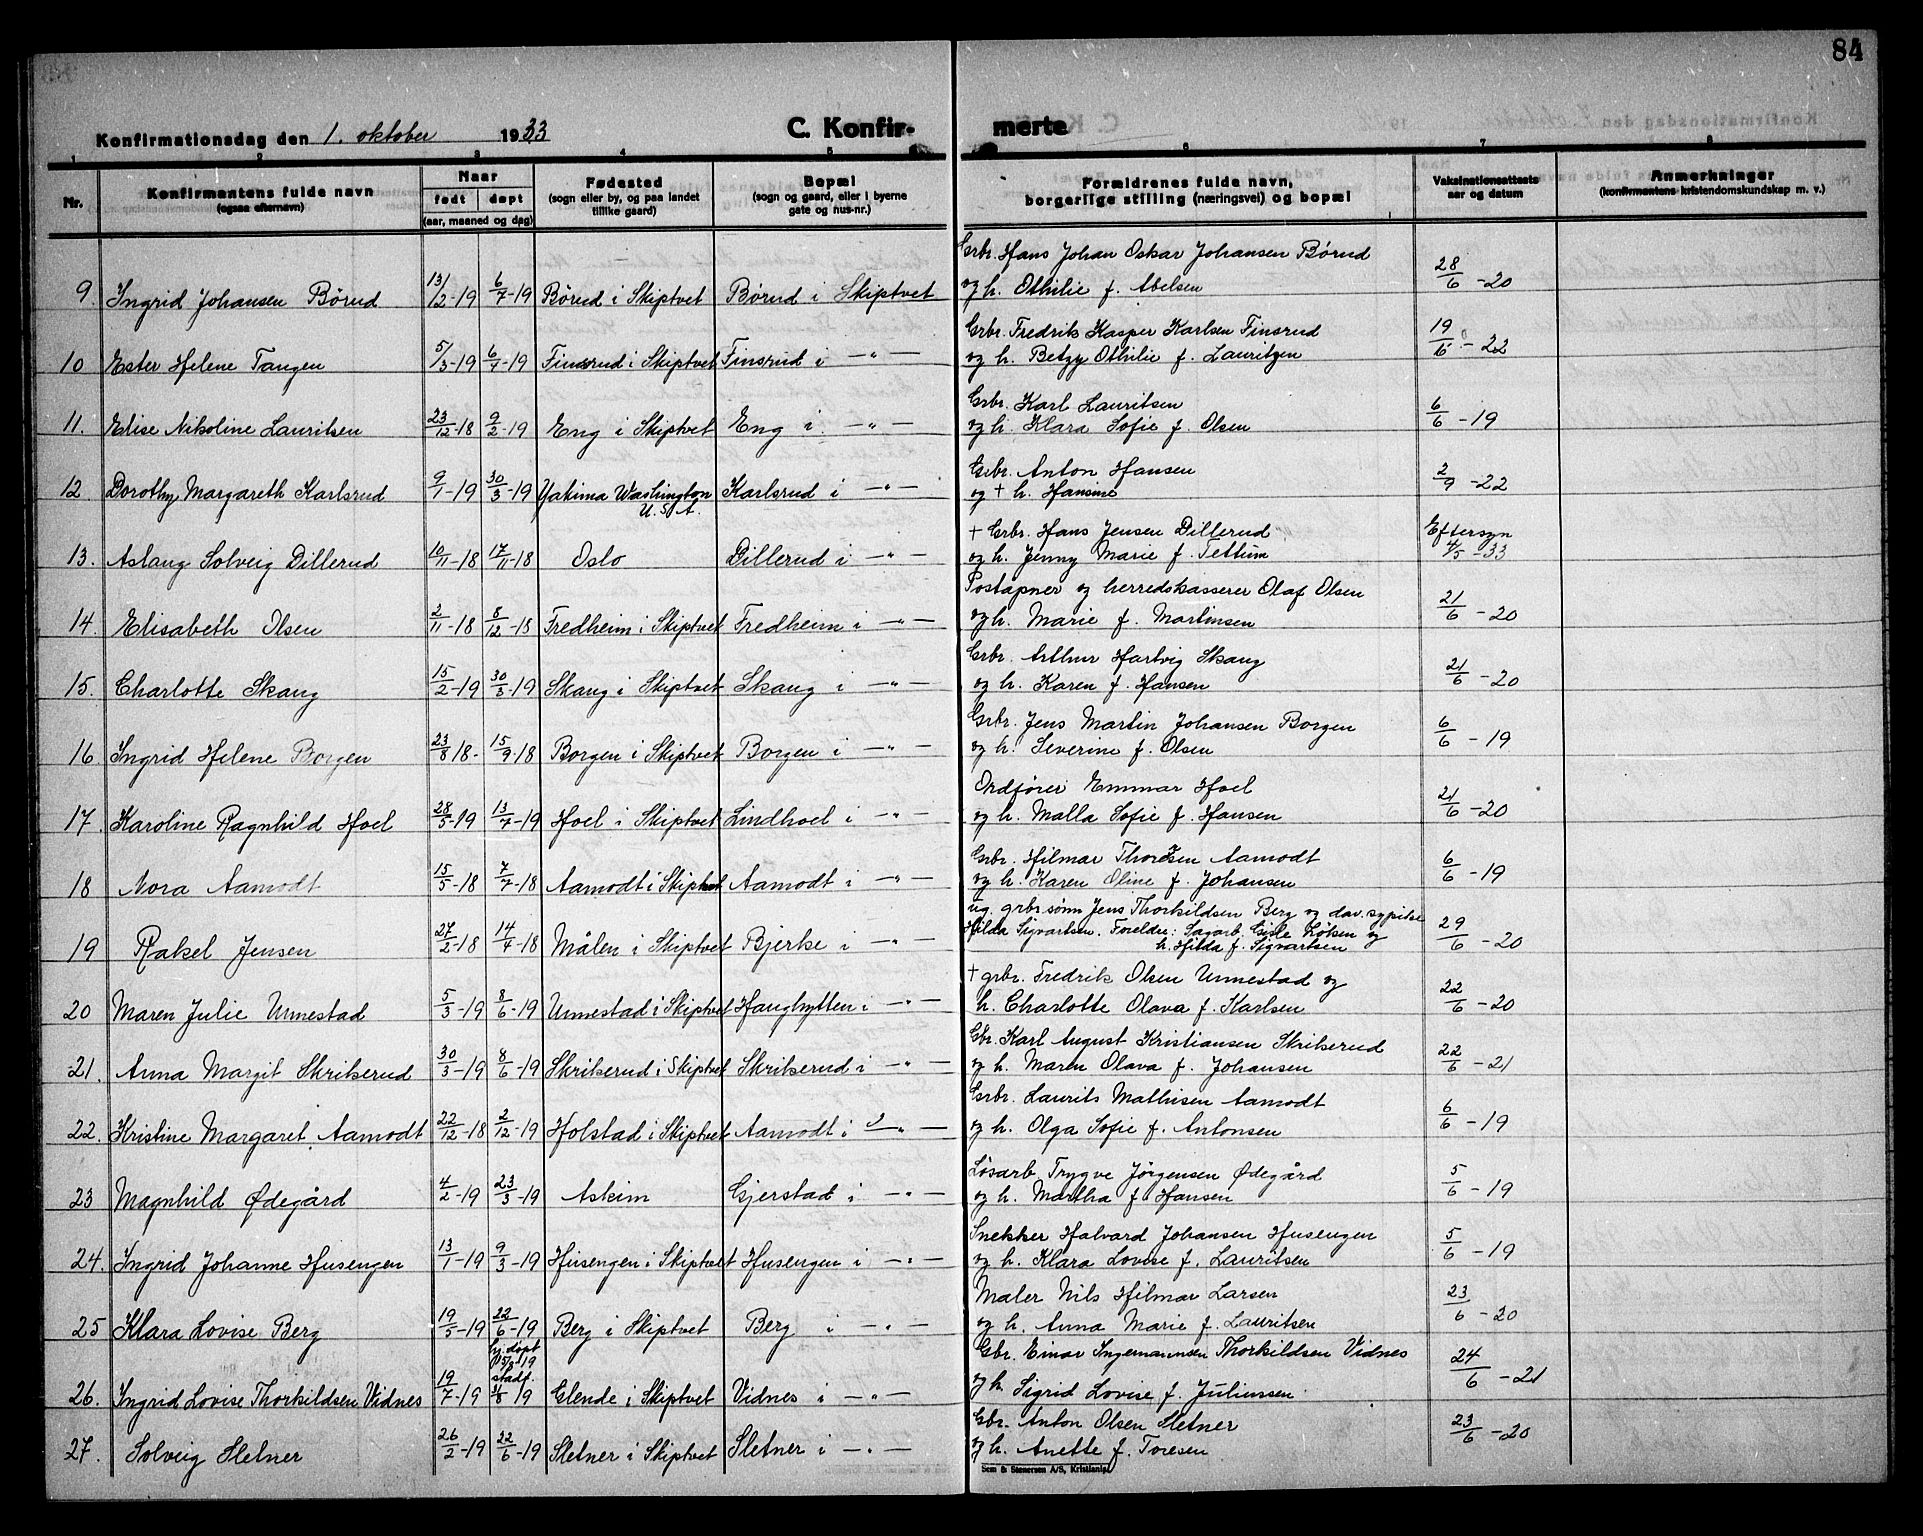 84
Konfirmationsdag den 1. oktober 1933 C. Konfirmerte
1 2 3 4 5 6 7 8
Nr. Konfirmantens fulde navn (ogsaa efternavn) Naar født døpt (aar, maaned og dag) Fødested (sogn eller by, og paa landet tillike gaard) Bopæl (sogn og gaard, eller i byerne gate og hus-nr.) Forældrenes fulde navn, borgerlige stilling (næringsvei) og bopæl Vaksinationsattests aar og datum Anmerkninger (konfirmantens kristendomskundskap m. v.)
Grbr. Hans Johan Oskar Johansen Børud
9. Ingrid Johansen Børud 13/2-19 6/7-19 Børud i Skiptvet Børud i Skiptvet og h. Othilie f. Abelsen 28/6-20
Grbr. Fredrik Kasper Karlsen Finsrud
10 Ester Helene Tangen 5/3-19 6/7-19 Finsrud i Skiptvet Finsrud i —"— og h. Betzy Othilie f. Lauritzen 19/6-22
Grbr. Karl Lauritsen
11. Elise Nikoline Lauritsen 23/12-18 9/2-19 Eng i Skiptvet Eng i —"— og h. Klara Sofie f. Olsen 6/6-19
Grbr. Anton Hansen
12. Dorothy Margareth Karlsrud 9/1-19 30/3-19 Yakima Washington U.S.A. Karlsrud i —"— og + h. Hansine 2/9-22
+ Grbr. Hans Jensen Dillerud
13. Aslaug Solveig Dillerud 10/11-18 17/11-18 Oslo Dillerud i —"— og h. Jenny Marie f. Tettum Eftersyn 4/5-33
Postapner og herredskasserer Olaf Olsen
14. Elisabeth Olsen 2/11-18 8/12-18 Fredheim i Skiptvet Fredheim i —"— og h. Marie f. Martinsen 21/6-20
Grbr. Arthur Hartvig Skaug
15. Charlotte Skaug 15/2-19 30/3-19 Skaug i Skiptvet Skaug i —"— og h. Karen f. Hansen 21/6-20
Grbr. Jens Martin Johansen Borgen
16 Ingrid Helene Borgen 23/8 18- 15/9-18 Borgen i Skiptvet Borgen i —"— og h. Severine f. Olsen 6/6-19
Ordfører Emmar Hoel
17. Karoline Ragnhild Hoel 28/5-19 13/7-19 Hoel i Skiptvet Lindhoel i —"— og h. Malla Sofie f. Hansen 21/6-20
Grbr. Hilmar Thoresen Aamodt
18 Nora Aamodt 15/5-18 7/7-18 Aamodt i Skiptvet Aamodt i —"— og h. Karen Oline f. Johansen 6/6-19
ug. grbr.sønn Jens Thorkildsen Berg og dav. sypike
19 Rakel Jensen 27/2-18 14/4-18 Målen i Skiptvet Bjerke i —"— Hilda Sigvartsen. Foreldre: Sagarb. Gisle Løken og h. Hilda f. Sigvartsen 29/6-20
+ grbr. Fredrik Olsen Unnestad og
20 Maren Julie Unnestad 5/3-19 8/6-19 Unnestad i Skiptvet Haughytten i —"— h. Charlotte Olava f. Karlsen 22/6-20
Gbr. Karl August Kristiansen Skrikerud
21. Anna Margit Skrikerud 30/3-19 8/6-19 Skrikerud i Skiptvet Skrikerud i —"— og h. Maren Olava f. Johansen 22/6-21
Grbr. Laurits Mathisen Aamodt
22. Kristine Margaret Aamodt 22/12-18 2/12-19 Holstad i Skiptvet Aamodt i —"— og h. Olga Sofie f. Antonsen 6/6-19
Løsarb. Trygve Jørgensen Ødegård
23 Magnhild Ødegård 4/2-19 23/3-19 Askim Gjerstad i —"— og h. Martha f. Hansen 5/6-19
Snekker Halvard Johansen Husengen
24. Ingrid Johanne Husengen 13/1-19 9/3-19 Husengen i Skiptvet Husengen i —"— og h. Klara Lovise f. Lauritsen 5/6-19
Maler Nils Hilmar Larsen
25 Klara Lovise Berg 19/5-19 22/6-19 Berg i Skiptvet Berg i —"— og h. Anna Marie f. Lauritsen 23/6-20
Gbr. Einar Ingemannsen Thorkildsen Vidnes
26. Ingrid Lovise Thorkildsen Vidnes 19/7-19 hj. døpt stadf. Glende i Skiptvet Vidnes i —"— og h. Sigrid Lovise f. Juliussen 24/6-21
Gbr. Anton Olsen Sletner
27. Solveig Sletner 26/2-19 22/6-19 Sletner i Skiptvet Sletner i —"— og h. Anette f. Toresen 23/6-20
Sem & Stenersen A/S, Kristiania